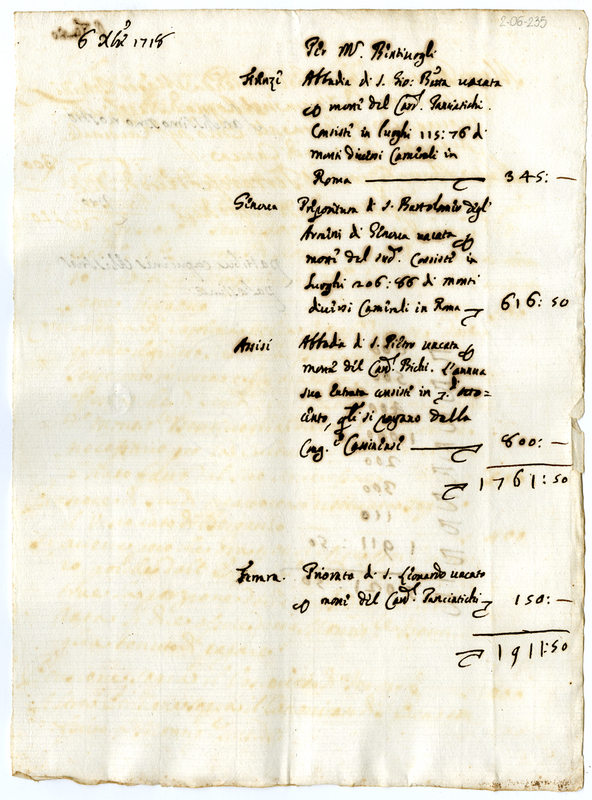 2-06-235
6 Xbre 1718
Per Mr. Bentivogli
Firenze Abbadia di S. Gio: Batta vacata
morte del Card. Panciatichi.
Consiste in luoghi 115:76 di
monti diversi Camerali in
Roma 345: —
Genova Prepositura di S. Bartolomeo degl'
Armeni di Genova vacata
morte del sud. Consiste in
Luoghi 206:86 di monti
diversi Camerali in Roma 616:50
Assisi Abbadia di S. Pietro vacata
morte del Card. Bichi. L'annua
sua entrata consiste in otto=
cento, si pagano dalla
Cong. Cassinense 800: —
1761:50
Ferrara. Priorato di S. Leonardo vacato
morte del Card. Panciatichi 150: —
1911:50